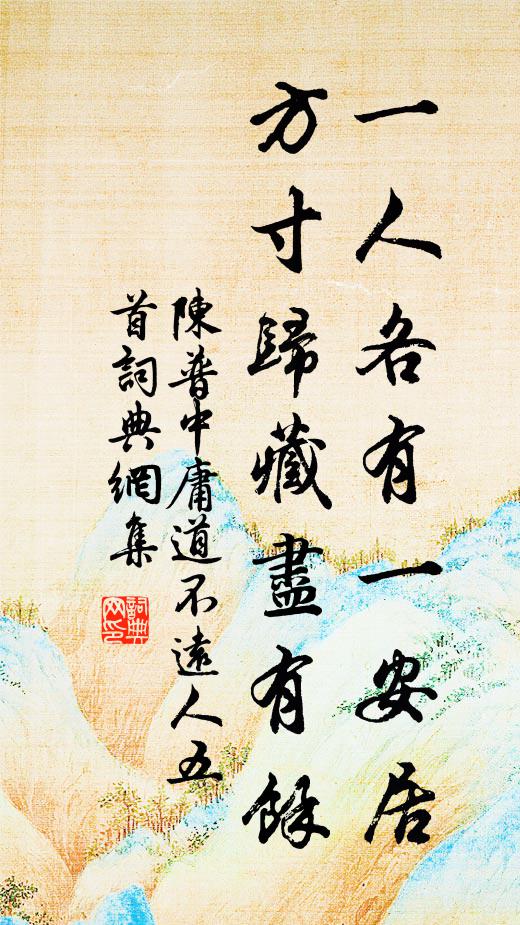 一人各有一安居
方寸歸藏盡有餘
陳普中庸道不遠人五
首詞典網集
詞典
网印